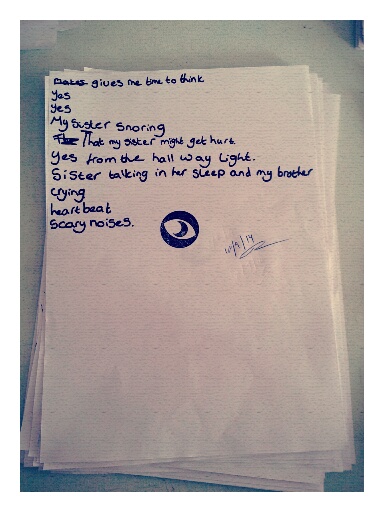 gives me time to think
Yes
Yes
My Sister Snoring
That my sister might get hurt.
Yes from the hall way light.
Sister talking in her sleep and my brother
crying
heartbeat
Scary noises.